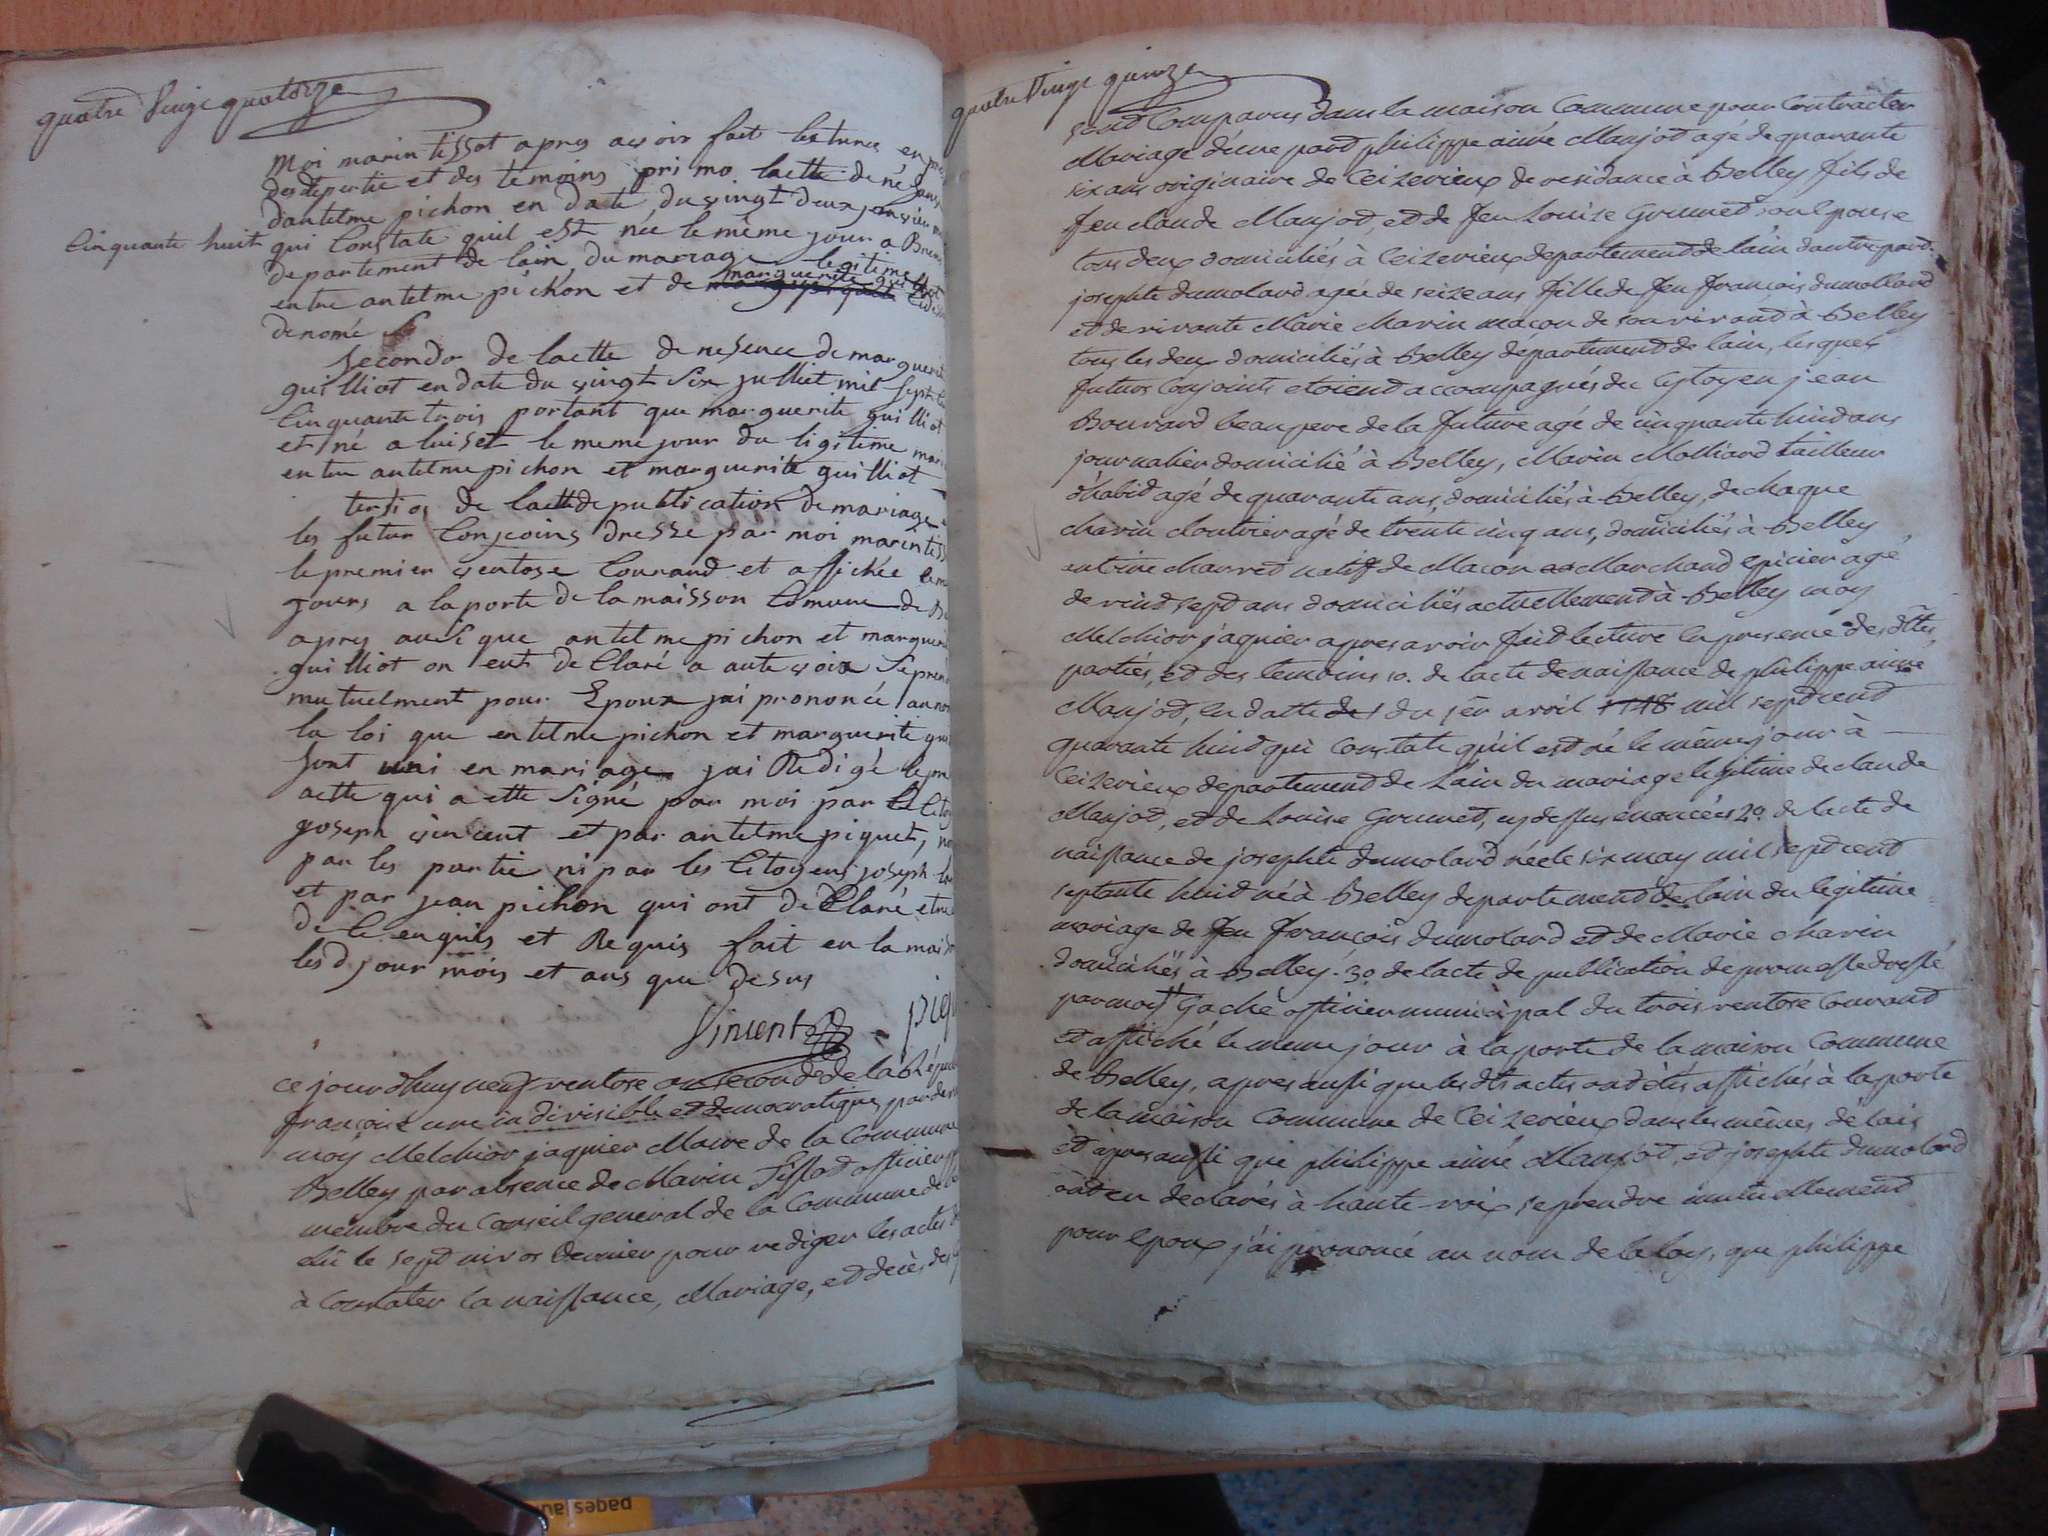 quatre Vingt quatorze
Moi marin tissot apres avoir fait lecture en
des dt partie et des temoins primo lactte de
dantelme pichon en date du vingt deux
Cinquante huit qui Constate quil est née le même jour a
departement de lain du mariage legitime
entre antelme pichon et de marguerite
denomé
Secondo de lactte de nesence de marguerit
guilliot en date du vingt Six julliet mil Sept
Cinquante trois portant que marguerite guilliot
et né a luiset le meme jour du ligitime mari
entre antelme pichon et marguerite guilliot
tertio de lactte de publication de mariage
les futur Conjoins dresse par moi marin tiss
le premier ventose Courand et affichée le m
jours a la porte de la maisson Comune de
apres ausi que antelme pichon et marguer
guilliot on ent declaré a aute voix Se pren
mutuelment pour Epoux jai prononcé au no
la loi que entelme pichon et marguerite gui
Sont uni en mariage jai Redigé le pre
actte qui a ette Signé par moi par le Cito
joseph vincent et par antelme piquet,
par les partie ni par les Citoyens joseph
et par jean pichon qui ont declaré etre
de le enquis et Requis fait en la mais
lesd jour mois et ans que desus
Vincent
ce jourdhuy neuf ventose an seconde de la Répu
francoise une indivisible et democratique, par de
moy Melchior jaquier Maire de la Commune
Belley par absence de Marin Tissot officier
membre du Conseil general de la Commune de
elü le sept nivos dernier pour rediger les actes
à Constater la naissance, Mariage, et decès des
quatre Vingt quinze
sont Comparus dans la maison Commune pour Contracter
Mariage d'une part philippe aimé Manjot agé de quarante
six ans originaire de Ceizerieux de residance à Belley fils de
feu claude Manjot, et de feu Louise Grumet son Epouse
tous deux domiciliés à Ceizerieux departement de lain dautre part
josephte dumolard agée de seize ans fille de feu françois dumollard
et de vivante Marie Marin macon de son vivand à Belley
tous les deux domiciliés à Belley département de lain, lesquels
futurs Conjoints etoient accompagnés du Cytoyen jean
Bouvard beaupere de la future agé de cinquante huit ans
journalier domicilié à Belley, Marin Molliard tailleur
d'habit agé de quarante ans, domiciliés à Belley, de chaque
Marin cloutrier agé de trente cinq ans, domiciliés à Belley
antoine charret natif de Macon Marchand Epicier agé
de vint sept ans domiciliés actuellement à Belley moy
Melchior jaquier apres avoir fait lecture En presence des dttes
partiés, Et des temoins 1o. de lacte de naissance de philippe aimé
Manjot, En datte du 1er avril 1748 mil sept cent
quarante huit qui Constate qu'il est né le même jour à
Ceizerieux departement de Lain du mariage legitime de claude
Manjot, et de Louise Grumet, cy dessus enoncées 2o. de lacte de
naissance de josephte dumolard née le six may mil sept cent
septante huit né à Belley departement de lain du legitime
mariage de feu françois dumolard et de Marie Marin
domiciliés à Belley. 3o. de lacte de publication de promesse dressé
par moi Gaché officier municipal du trois ventose Courand
et affiché le meme jour à la porte de la maison Commune
de Belley, apres aussi que les dts actes ont étés affichés à la porte
de la maison Commune de Ceizerieux dans les mêmes délais
Et apres aussi que philippe aimé Manjot, et josephte dumolard
ont eu declarés à haute voix se prendre mutuellement
pour Epoux j'ai prononcé au nom de la loy, que philippe